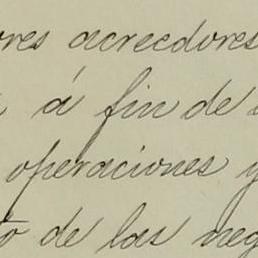 ores acreedores
á fin de
operaciones y
to de las neg